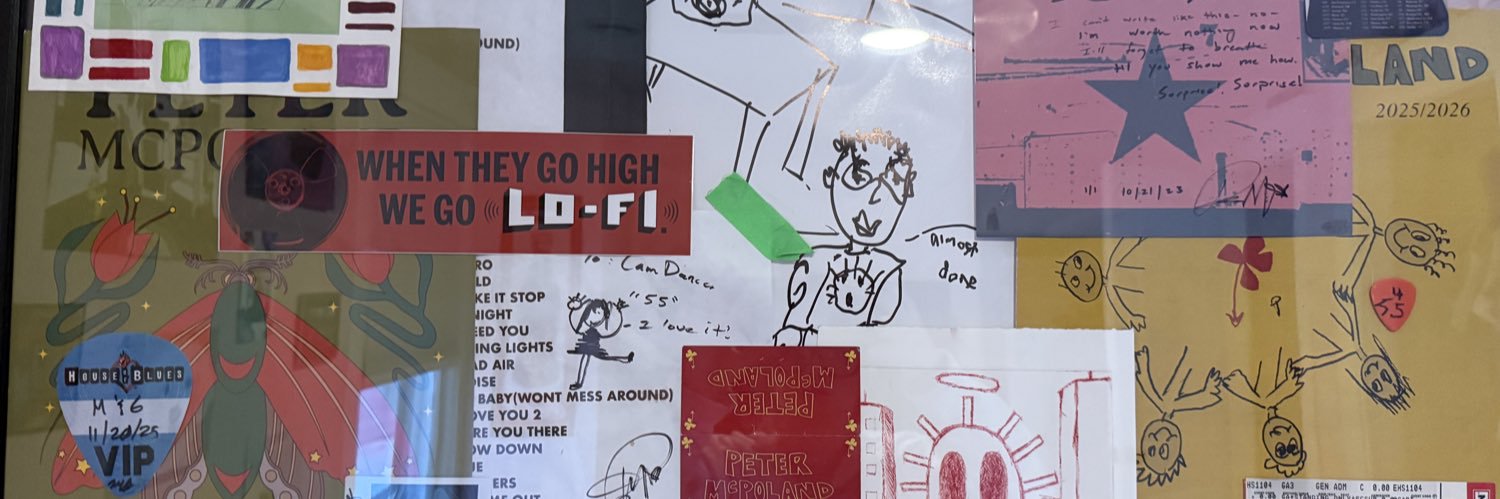 OUND)
PETER
MCPO
WHEN THEY GO HIGH
WE GO LO-FI.
I can't write like this- no-
I'm worth nothing now
I'll forget to breathe
til you show me how.
Surprise! Surprise!
1/1 10/21/23
LAND
2025/2026
Almost
done
To: Cam Dances
"55"
- I love it!
RO
LD
KE IT STOP
NIGHT
EED YOU
ING LIGHTS
AD AIR
OISE
BABY(WONT MESS AROUND)
OVE YOU 2
RE YOU THERE
OW DOWN
UE
ERS
ME OUT
HOUSE OF BLUES
M&G
11/20/25
VIP
PETER
MCPOLAND
PETER
MCPOLAND
4
55
HS1104 GA3 GEN ADM C 0.00 EHS1104